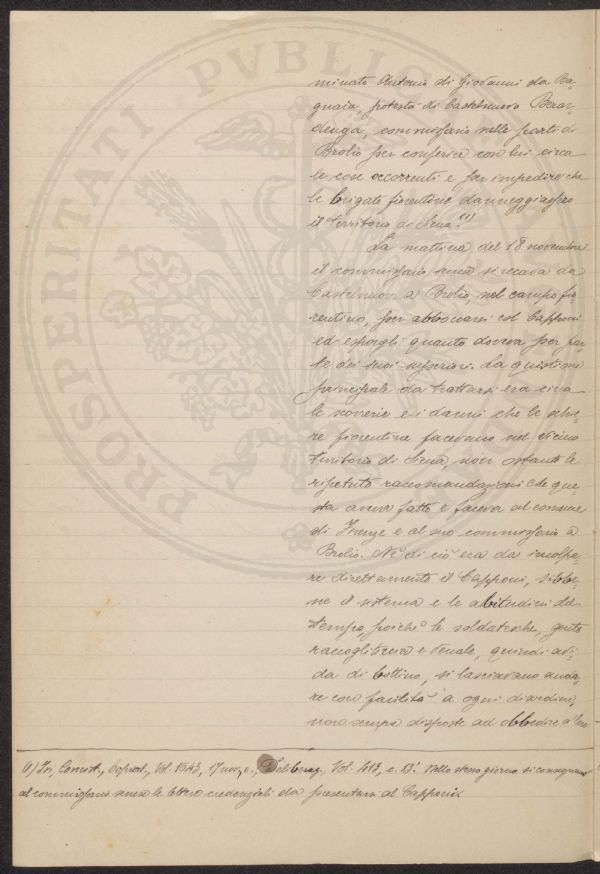 PROSPERITATI PVBLICAE
minato Antonio di Giovanni da Ba-
gnaia, potestà di Castelnuovo Berar-
denga, commissario nelle parti di
Brolio per conferir con lui circa
le cose occorrenti e per impedire che
le brigate fiorentine danneggiassero
il territorio di Siena. (1)
La mattina del 18 novembre
il commissario senese si recava da
Castelnuovo a Brolio, nel campo fio-
rentino, per abboccarsi col Capponi
ed esporgli quanto doveva per par-
te dei suoi superiori. La questione
principale da trattarsi era circa
le scorrerie e i danni che le schie-
re fiorentine facevano nel vicino
territorio di Siena, non ostante le
ripetute raccomandazioni che que-
sta aveva fatto e faceva al comune
di Firenze e al suo commissario a
Brolio. Nè di ciò era da incolpa-
re direttamente il Capponi, sibbe-
ne il sistema e le abitudini del
tempo, poichè le soldatesche, gente
raccogliticcia e venale, quindi avi-
da di bottino, si lasciavano anda-
re con facilità a ogni disordine,
non sempre disposte ad obbedire a'
(1) Ivi, Concist., Copial., Vol. 1643, 17 nov, c., Deliberaz., Vol. 413, c. 13. Nello stesso giorno si consegnano
al commissario senese le lettere credenziali da presentarsi al Capponi.